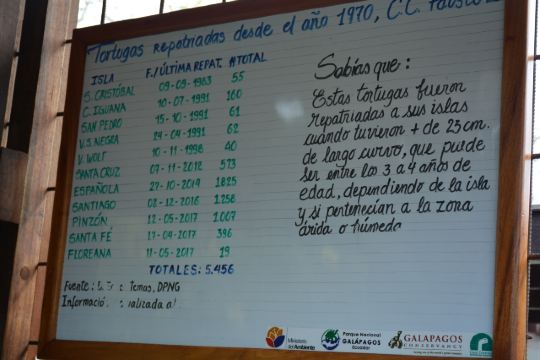 Tortugas repatriadas desde el año 1970, C.C. Fausto
ISLA F./ÚLTIMA REPAT. # TOTAL
S. CRISTÓBAL 09-09-1983 55
C. IGUANA 10-07-1991
SAN PEDRO 15-10-1991 61
V. S. NEGRA 24-04-1991 62
V. WOLF 10-11-1998 40
SANTA CRUZ 07-11-2012 573
ESPAÑOLA 27-10-2014 1825
SANTIAGO 02-12-2016 1.258
PINZÓN 12-05-2017 1.007
SANTA FÉ 17-04-2017 396
FLOREANA 11-05-2017 19
TOTALES: 5.456
Fuente: Temas, DPNG
Informació ualizada al
Sabías que:
Estas tortugas fueron
repatriadas a sus islas
cuando tuvieron + de 23 cm.
de largo curvo, que puede
ser entre los 3 a 4 años de
edad, dependiendo de la isla
y si pertenecían a la zona
árida o húmeda
Ministerio
del Ambiente
Parque Nacional
GALÁPAGOS
Ecuador
GALAPAGOS
CONSERVANCY